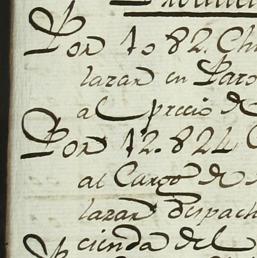 Por 1082. Chi
lazar en Paro
al precio de
Por 12.824
al Cargo de
lazar despach
cienda del